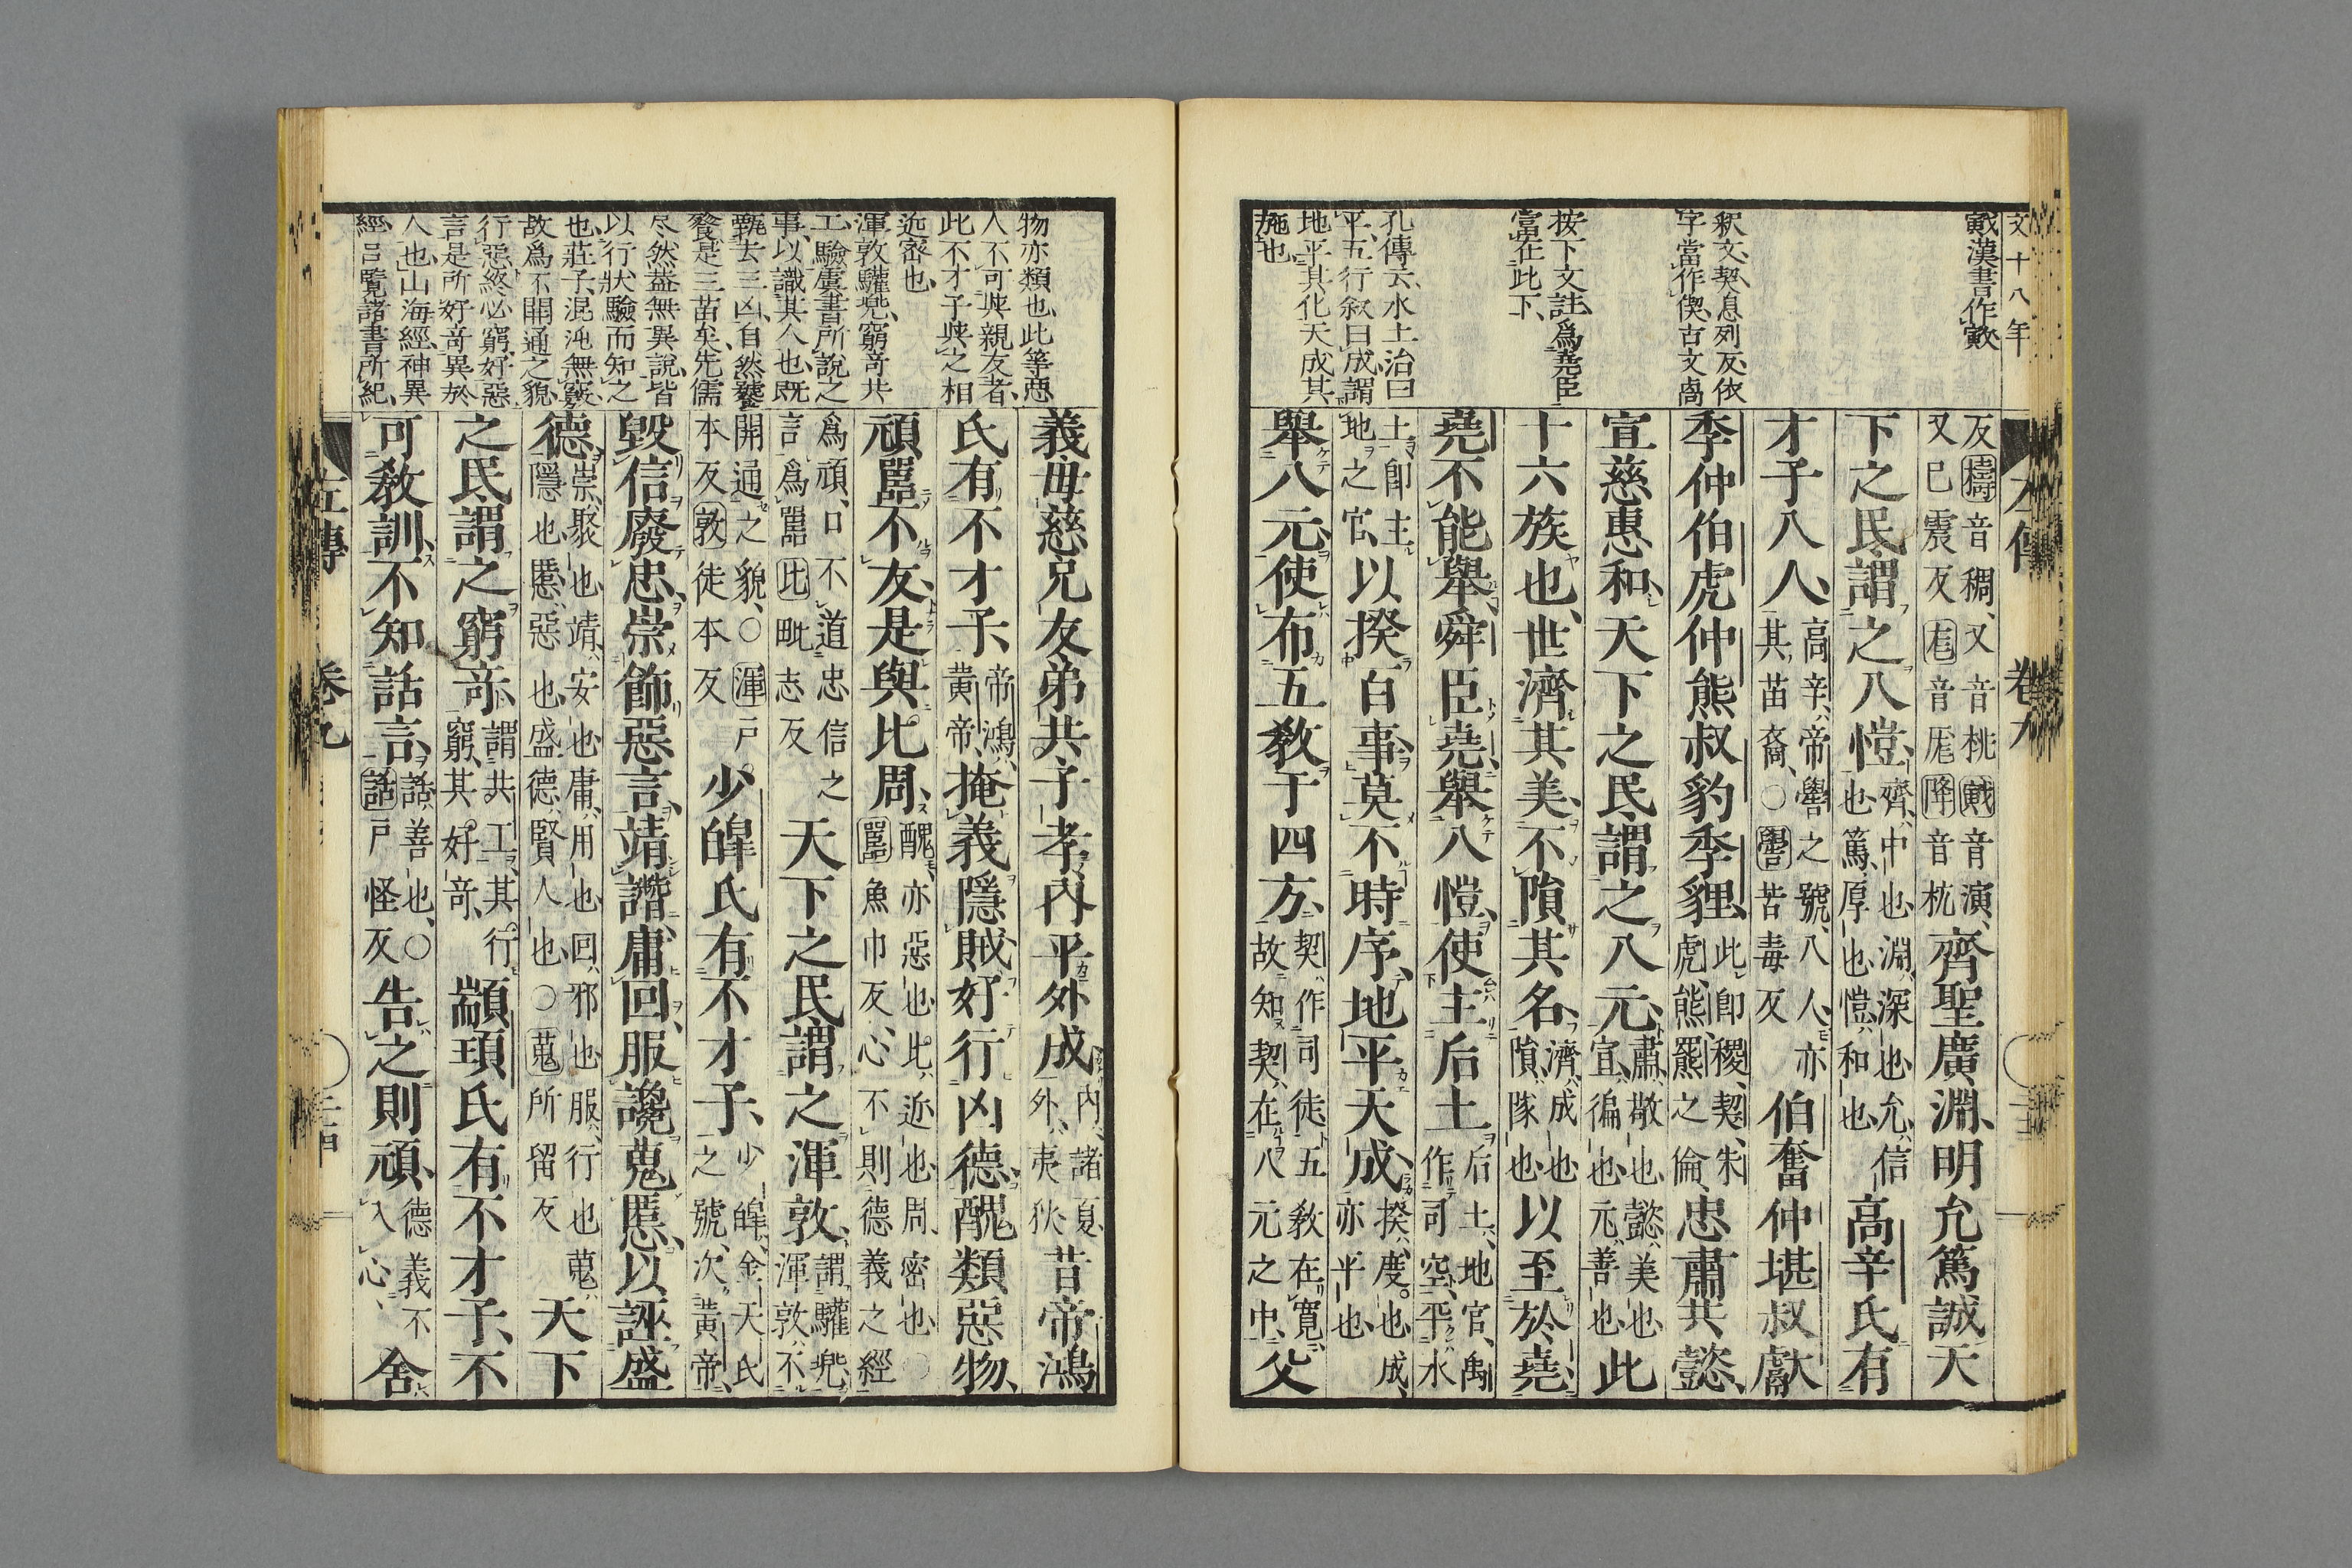 文十八年
左傳 卷九
戭漢書作
釈文契息列反依
字當作偰古文卨
按下文註爲堯臣
當在此下
孔傳云水土治曰
平五行叙曰成謂
地平其化天成其
施也
反檮音稠又音桃戭音演又巳震反尨音厖降音杭齊聖廣淵明允篤誠天
下之民謂之八愷齊中也淵深也允信也篤厚也愷和也高辛氏有
才子八人高辛帝嚳之號八人亦其苗裔○嚳苦毒反伯奮仲堪叔獻
季仲伯虎仲熊叔豹季貍此即稷契朱虎熊羆之倫忠肅共懿
宣慈惠和天下之民謂之八元肅敬也懿美也宣徧也元善也此
十六族也世濟其美不隕其名濟成也隕隊也以至於堯
堯不能舉舜臣堯舉八愷使主后土后土地官禹作司空平水
土即主地之官以揆百事莫不時序地平天成揆度也成亦平也
舉八元使布五教于四方契作司徒五教在寬故知契在八元之中父
物亦類也此等惡
人不可與親友者
此不才子與之相
近密也
渾敦驩兜窮竒共
工驗虞書所說之
事以識其人也既
甄去三凶自然饕
餮是三苗矣先儒
尽然葢無異說皆
以行狀驗而知之
也莊子混沌無竅
故爲不開通之貌
行惡終必窮好惡
言是所好竒異於
人也山海經神異
經呂覽諸書所紀
義母慈兄友弟共子孝內平外成內諸夏外夷狄昔帝鴻
氏有不才子帝鴻黃帝掩義隱賊好行凶德醜類惡物
頑嚚不友是與比周醜亦惡也比近也周密也○嚚魚巾反心不則德義之經
爲頑口不道忠信之言爲嚚比毗志反天下之民謂之渾敦謂驩兜渾敦不
開通之貌○渾戶本反敦徒本反少皥氏有不才子少皥金天氏之號次黃帝
毀信廢忠崇飾惡言靖譖庸回服讒蒐慝以誣盛
德崇聚也靖安也庸用也回邪也服行也蒐隱也慝惡也盛德賢人也○蒐所留反天下
之民謂之窮竒謂共工其行窮其好竒顓頊氏有不才子不
可敎訓不知話言話善也○話戶怪反告之則頑德義不入心舍
左傳 卷九